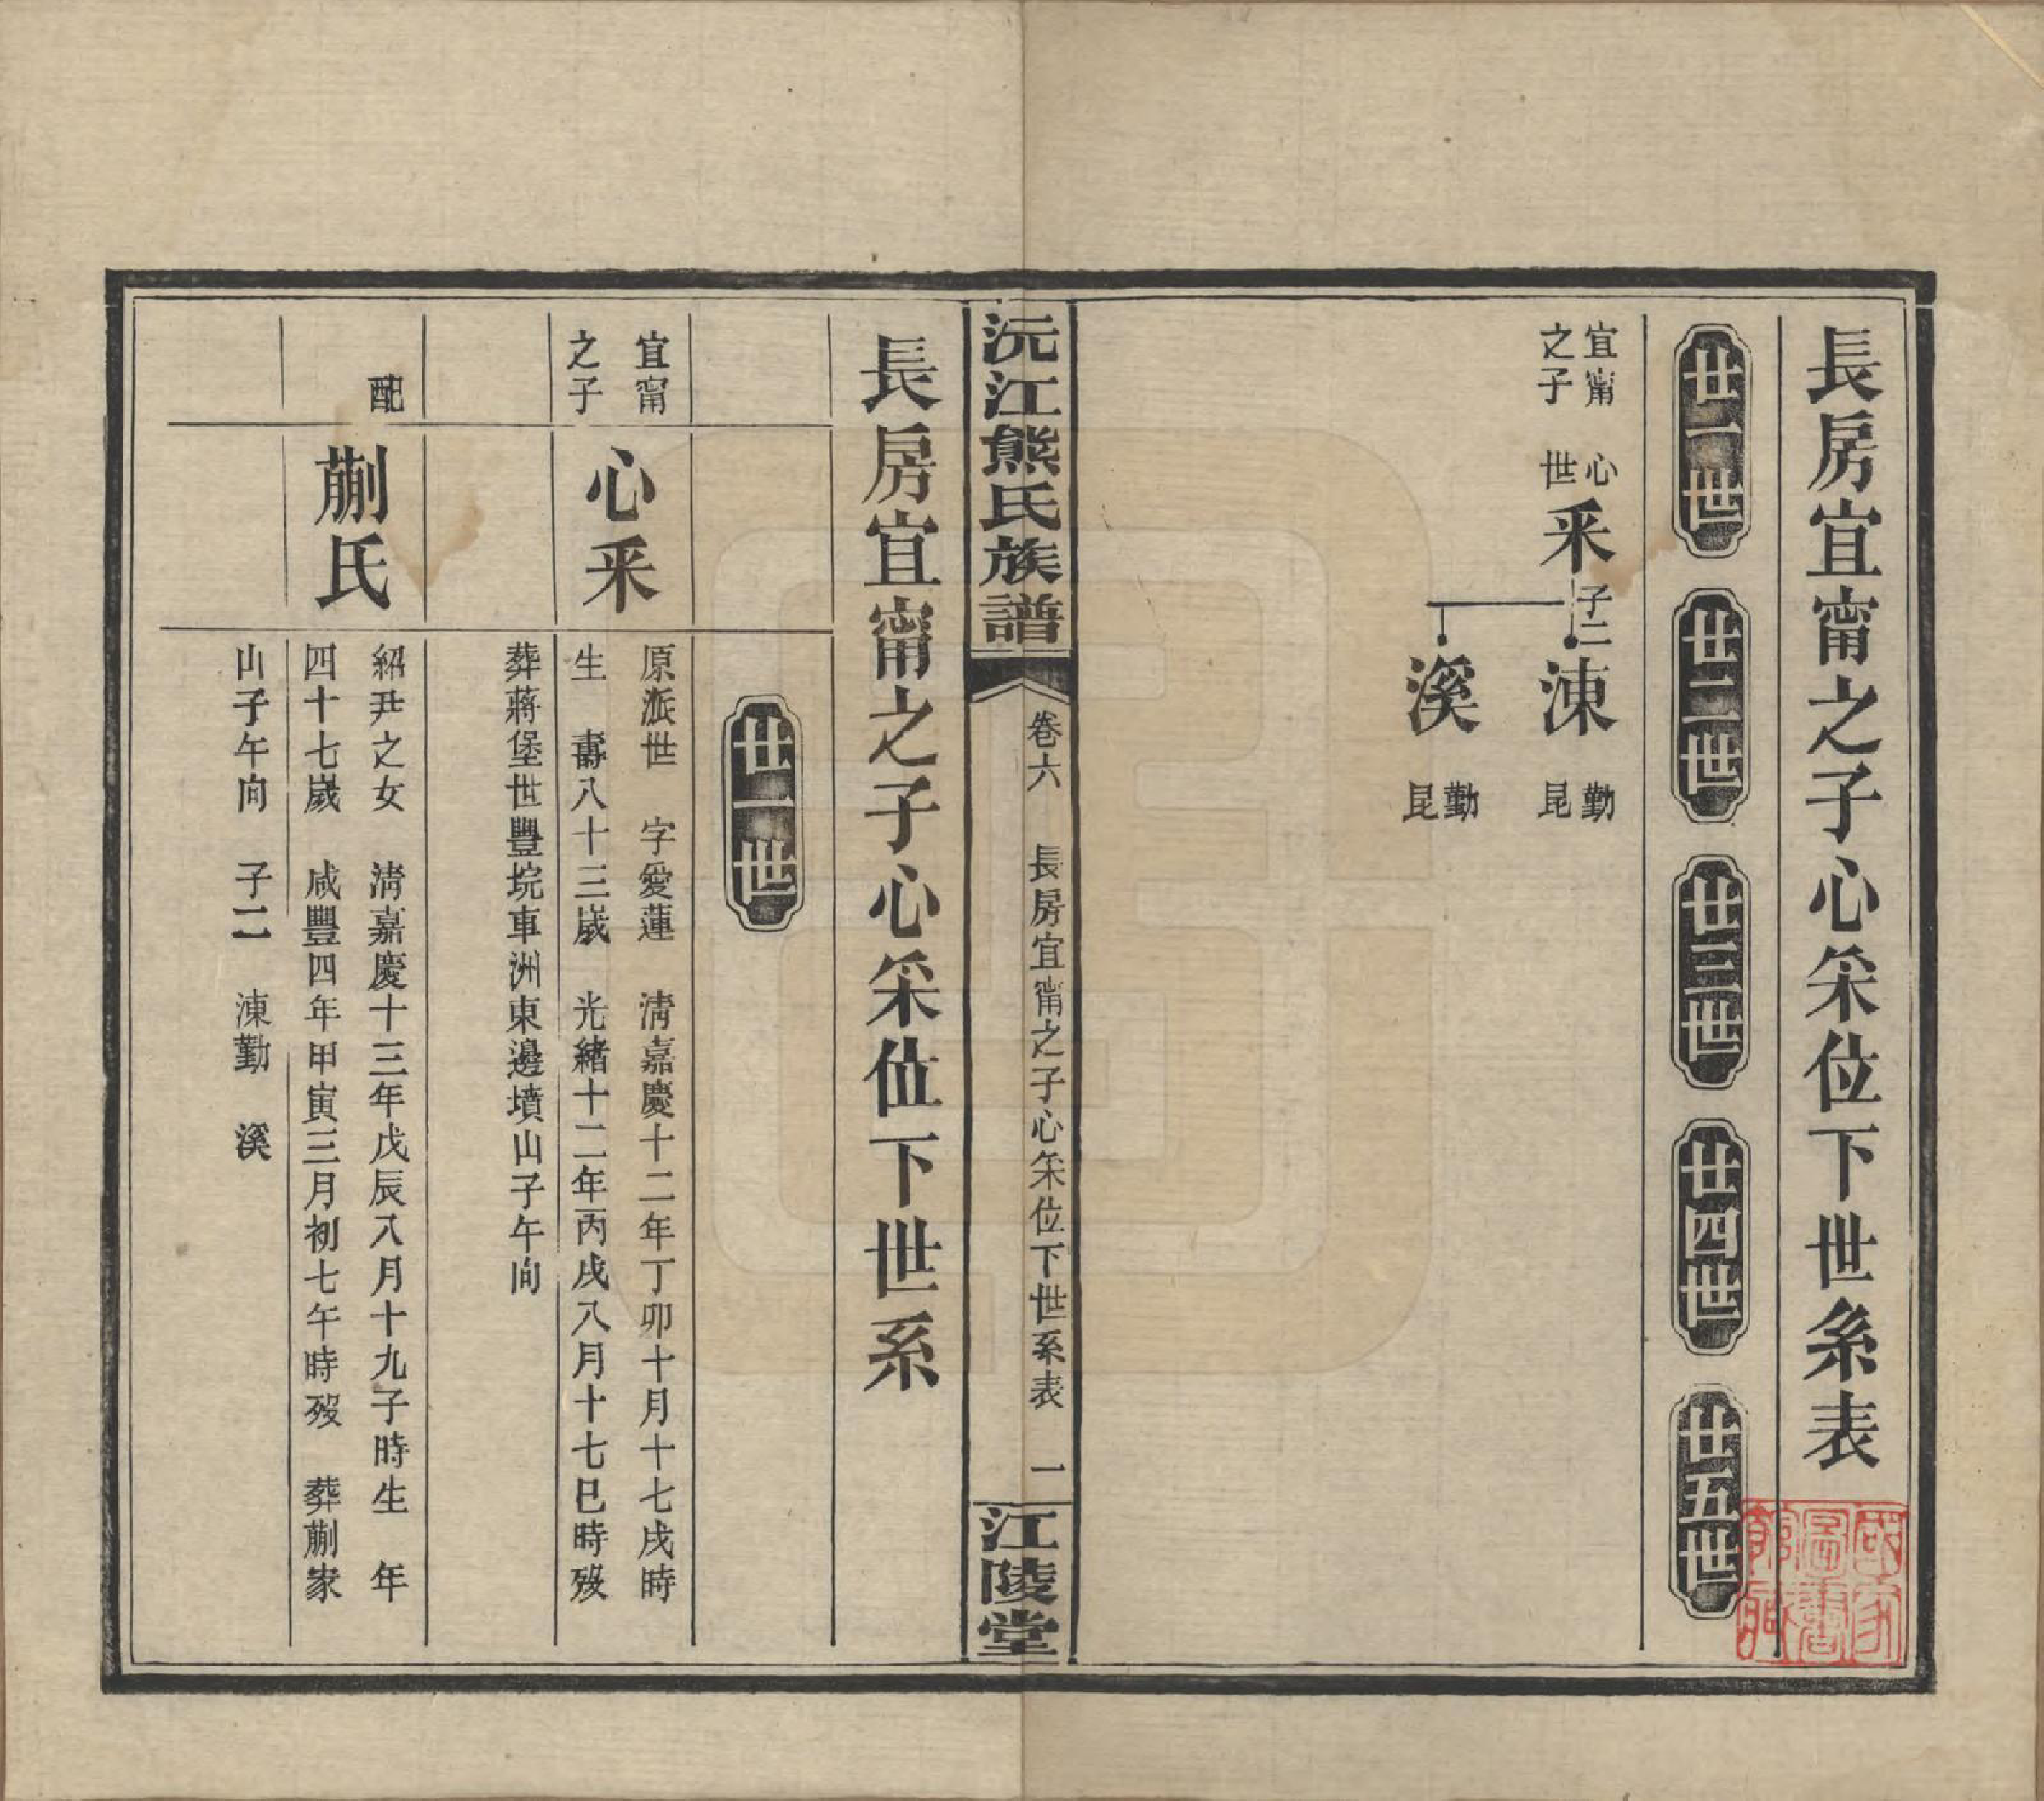 長房宜甯之子心采位下世系表
廿一世
廿二世
廿三世
廿四世
廿五世
宜甯
之子
心
世
采
子二
涷
勤
昆
溪
勤
昆
沅江熊氏族譜
卷六 長房宜甯之子心采位下世系表 一
江陵堂
長房宜甯之子心采位下世系
廿一世
宜甯
之子
心采
原派世 字愛蓮 清嘉慶十二年丁卯十月十七戌時
生 壽八十三嵗 光緒十二年丙戌八月十七巳時歿
葬蔣堡世豐垸車洲東邊墳山子午向
配
蒯氏
紹尹之女 清嘉慶十三年戊辰八月十九子時生 年
四十七嵗 咸豐四年甲寅三月初七午時歿 葬蒯家
山子午向 子二 涷勤 溪
國家
圖書
館藏